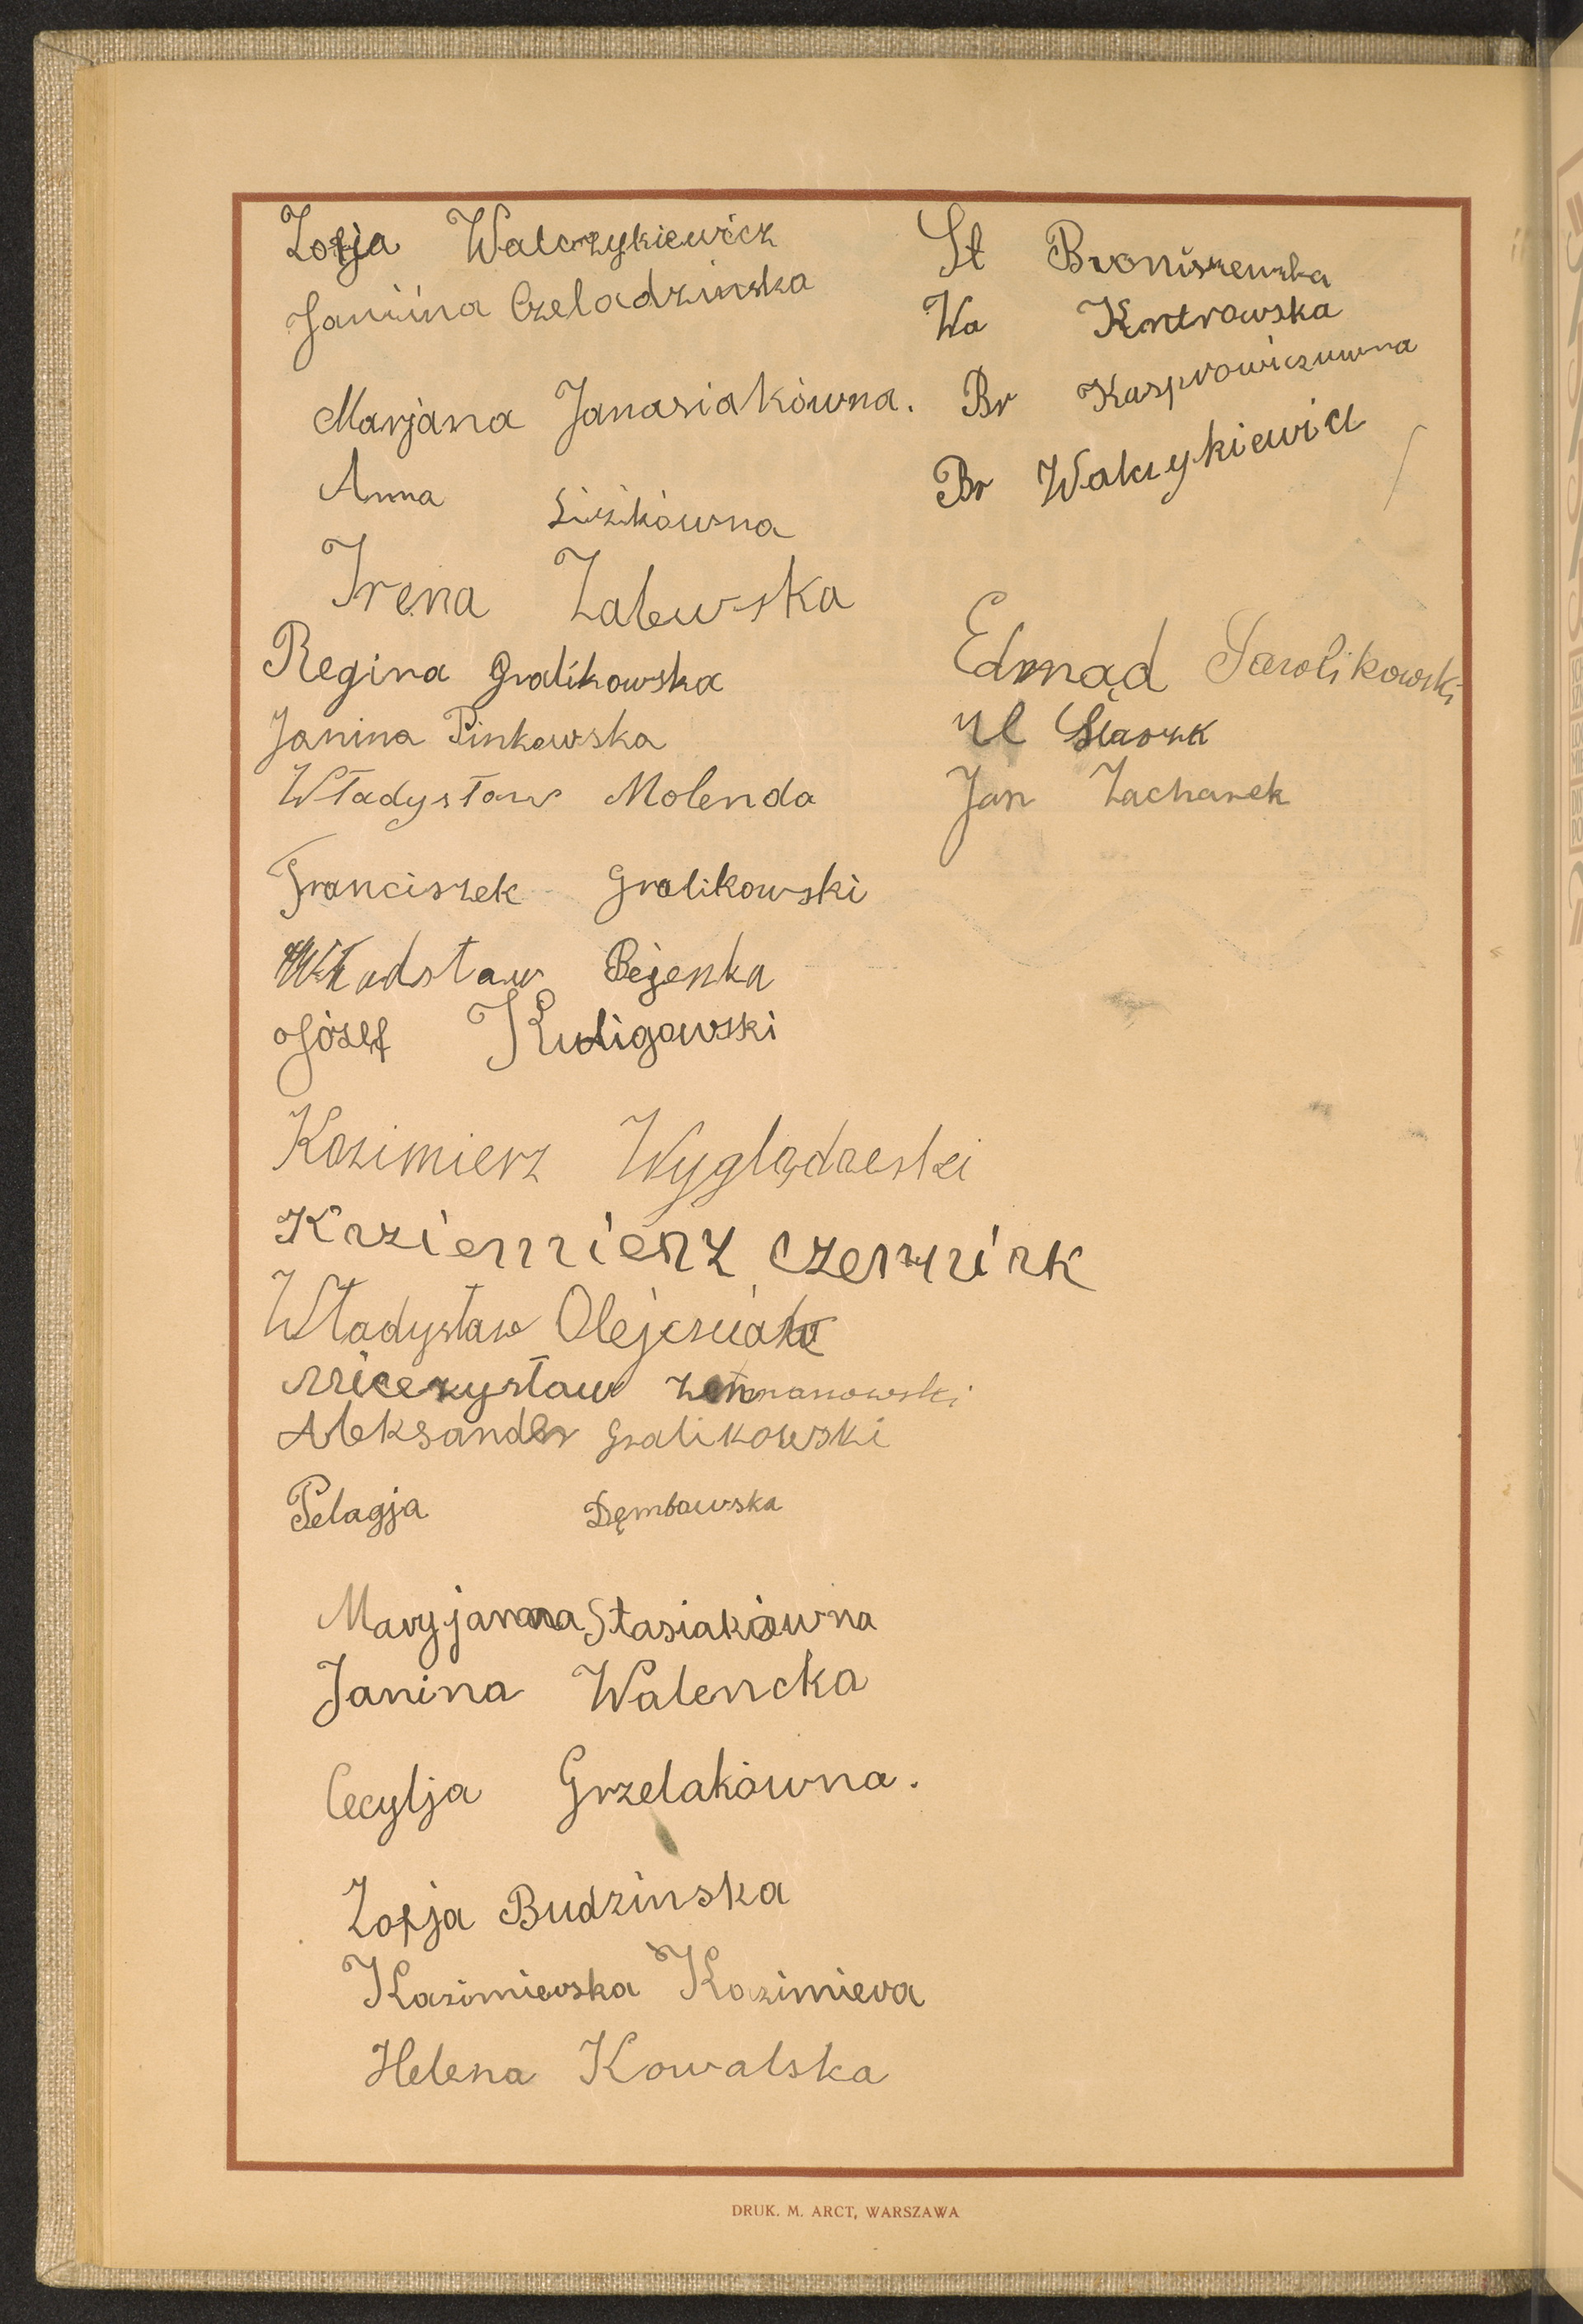 Zofja Walczykiewicz
Janina Czeladzinska
Marjana Janasiakówna.
Anna
Irena Zalewska
Regina Gralikowska
Janina Pinkowska
Władysław Molenda
Franciszek Gralikowski
Władstaw Pejenka
Józef Kuligowski
Kazimierz
Krziemierz
Władysław Olejcniak
Micezysław
Aleksander Gralikowski
Pelagja Dęmbowska
Maryjanna Stasiakówna
Janina Walencka
Cecylja Grzelakówna.
Zofja Budzinska
Kazimierska Kazimiera
Helena Kowalska
St Broniszewska
Wa Kntrowska
Br Kasprowiczuwna
Br Walczykiewicz
Edmąd
Jan Zacharek
DRUK. M. ARCT, WARSZAWA